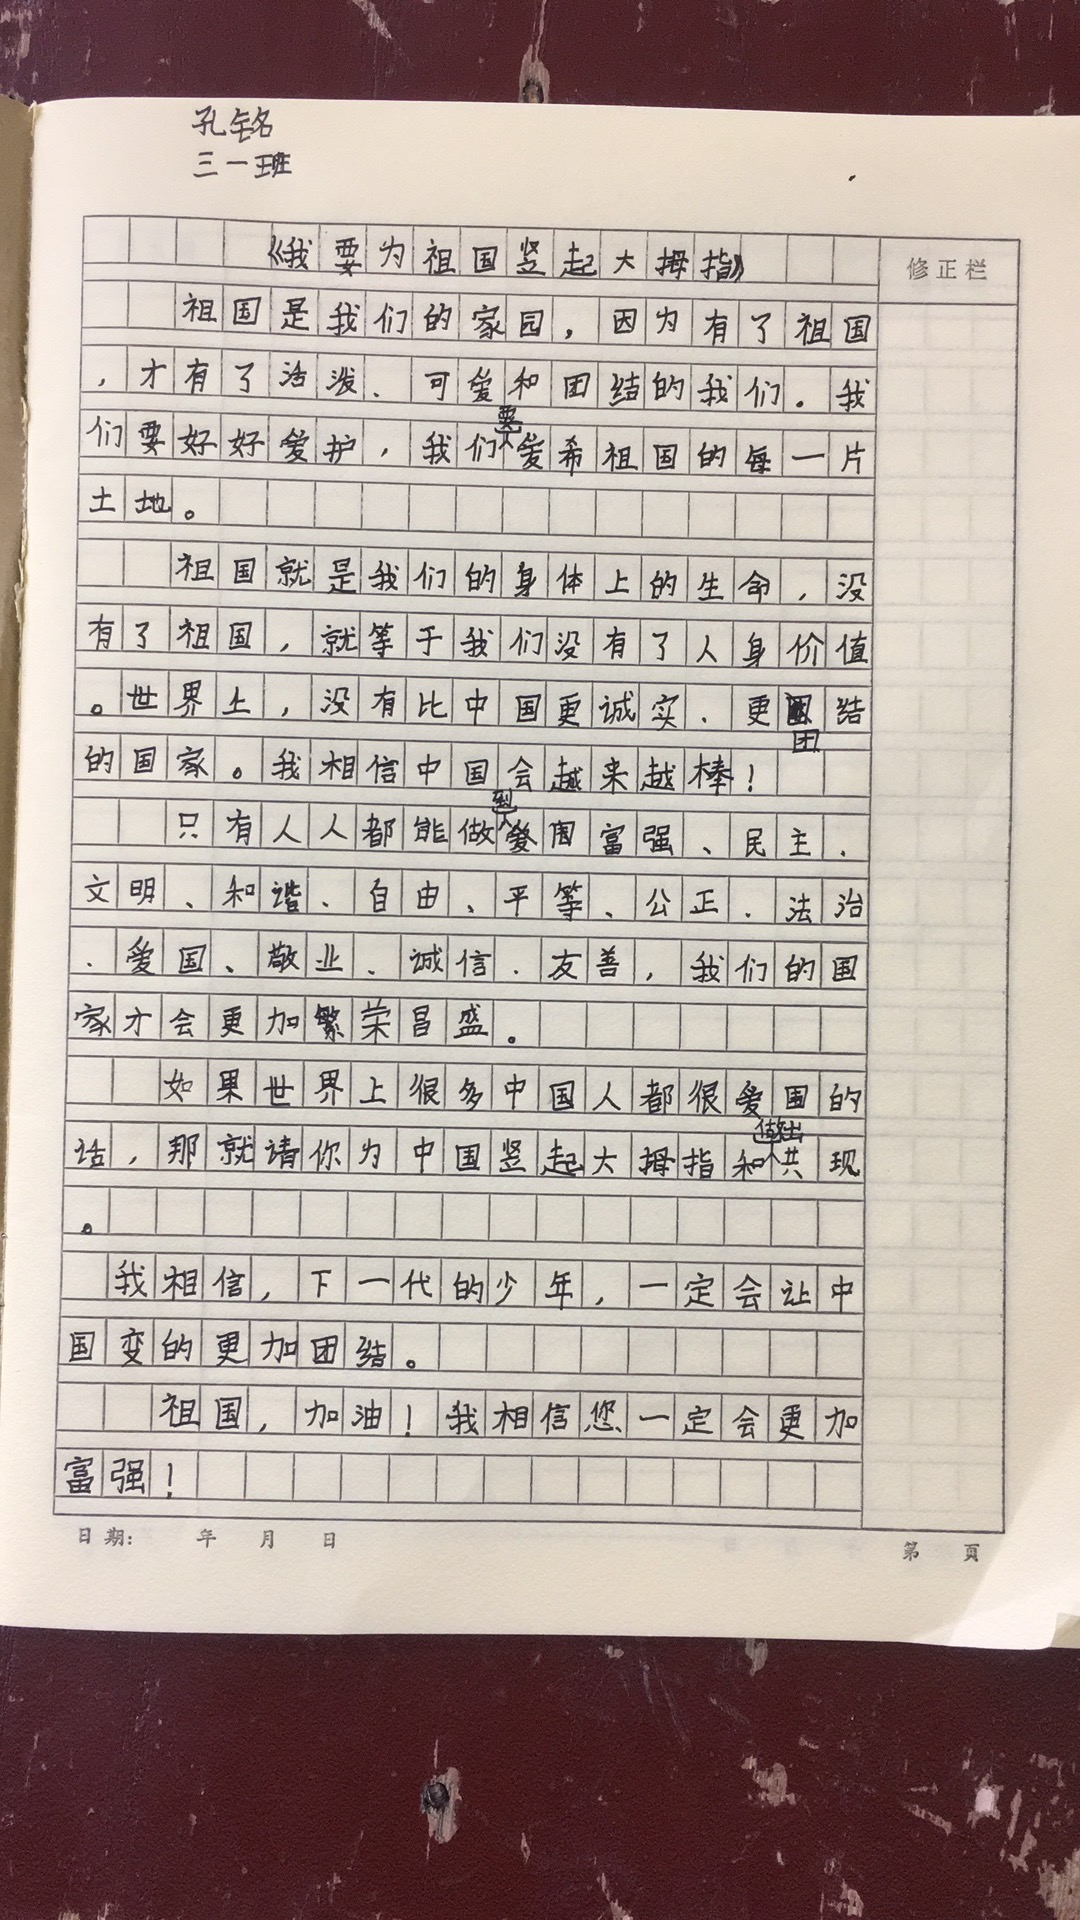 孔铭
三一班
《我要为祖国竖起大拇指》
修正栏
祖国是我们的家园，因为有了祖国
，才有了活泼、可爱和团结的我们。我
们要好好爱护，我们要爱希祖国的每一片
土地。
祖国就是我们的身体上的生命，没
有了祖国，就等于我们没有了人身价值
。世界上，没有比中国更诚实、更团结
的国家。我相信中国会越来越棒！
只有人人都能做到爱国富强、民主、
文明、和谐、自由、平等、公正、法治
、爱国、敬业、诚信、友善，我们的国
家才会更加繁荣昌盛。
如果世界上很多中国人都很爱国的
话，那就请你为中国竖起大拇指和做出共现
。
我相信，下一代的少年，一定会让中
国变的更加团结。
祖国，加油！我相信您一定会更加
富强！
日期： 年 月 日
第 页